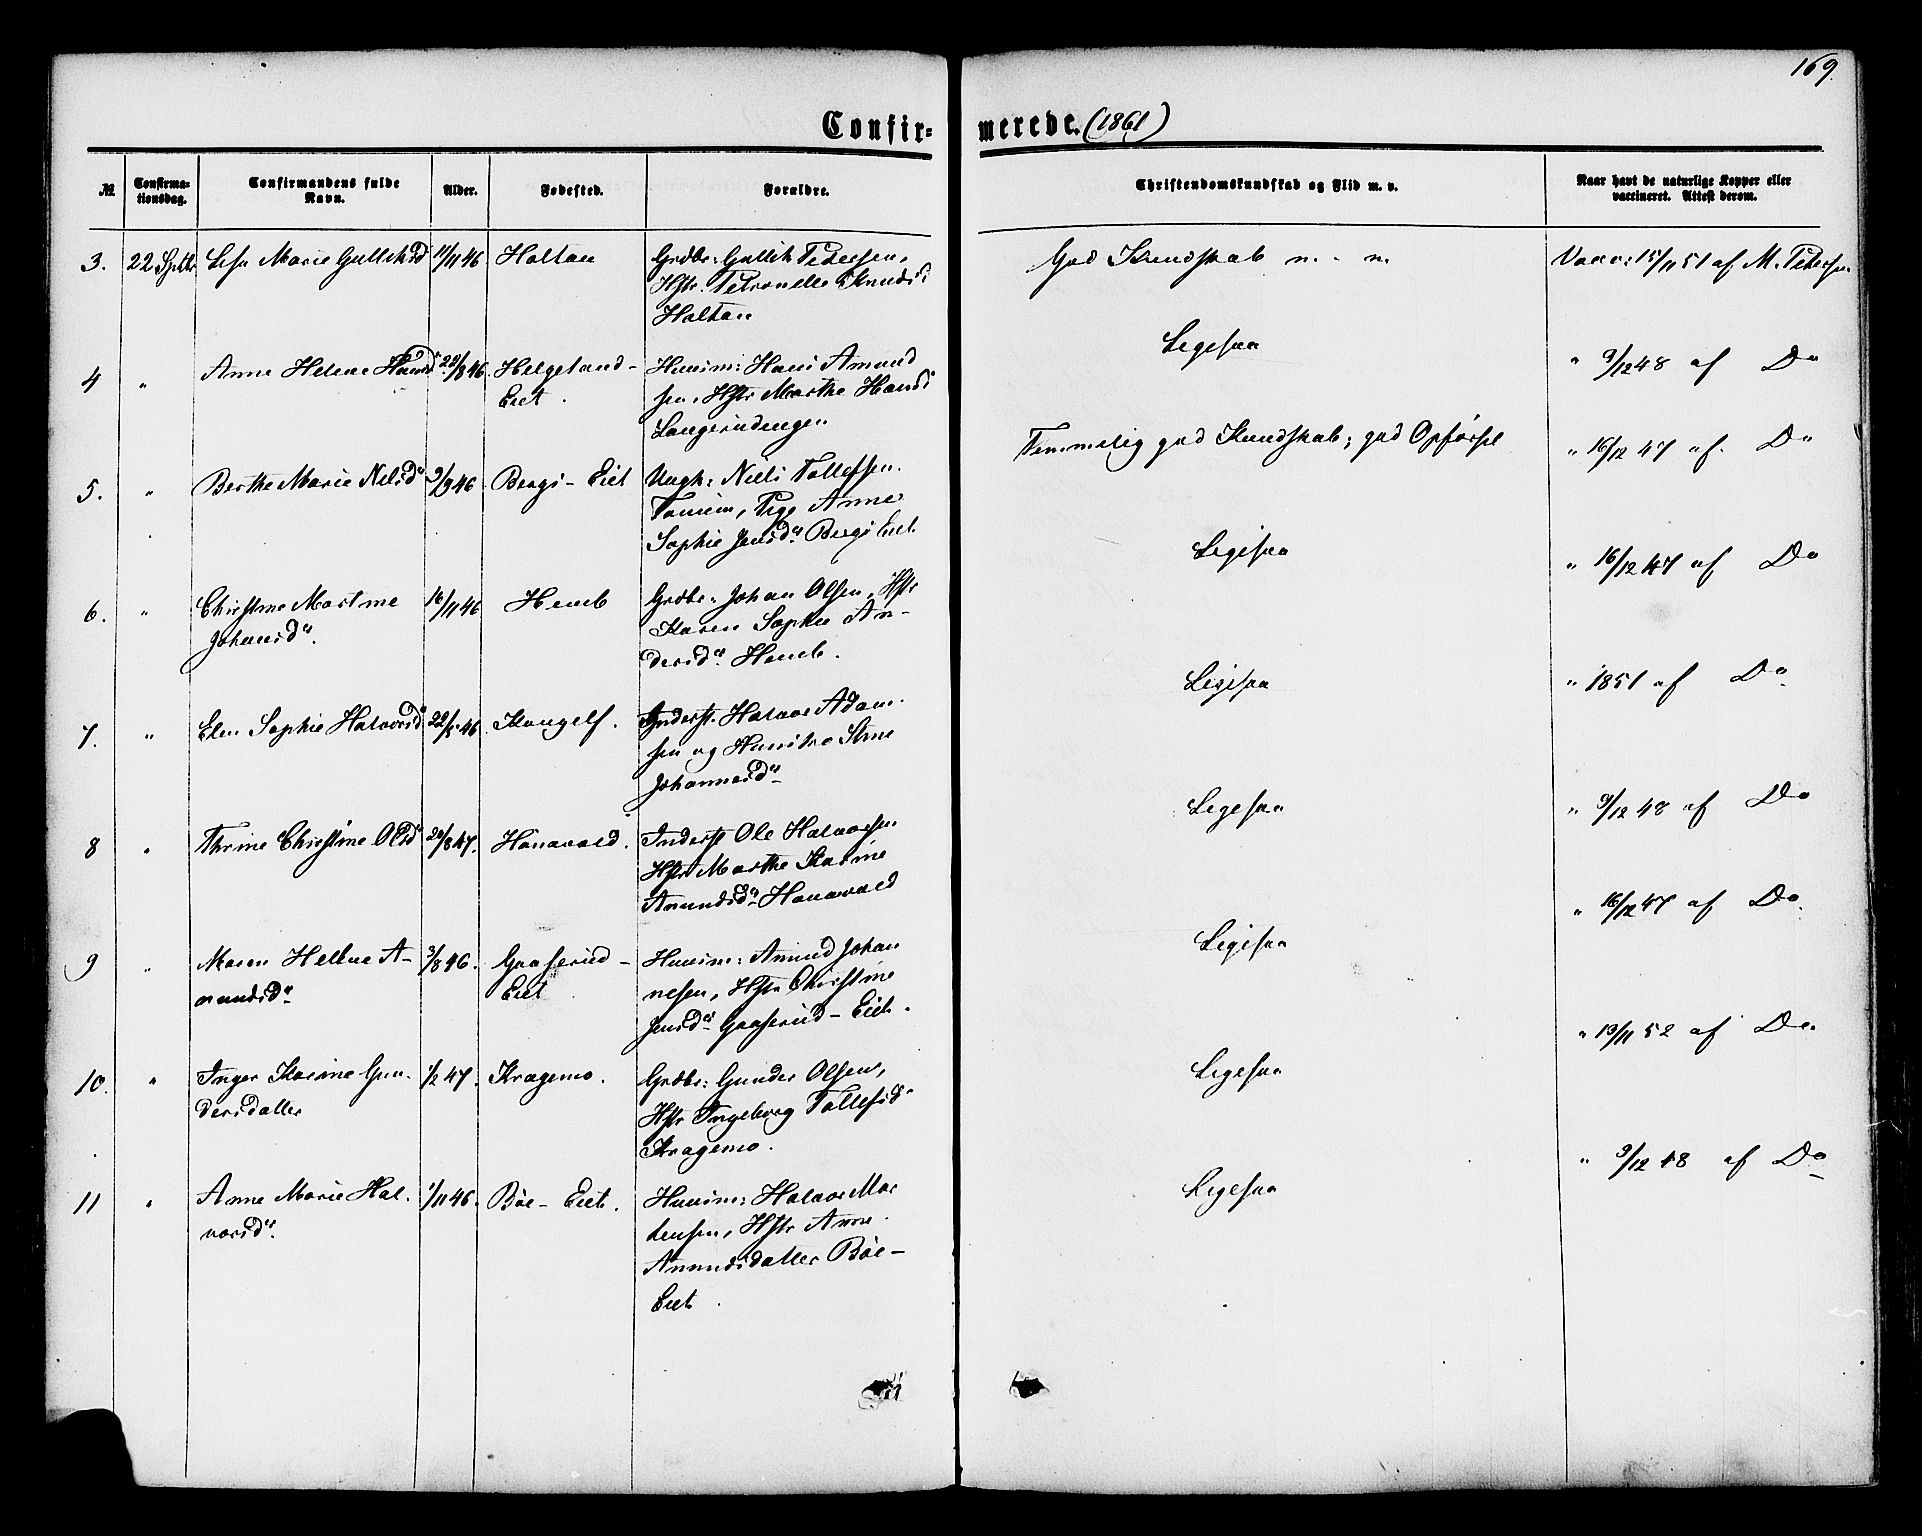 169.
Confir-merede. (1861)
№ Confirmationsdag. Confirmandens fulde Navn. Alder. Fødested. Forældre. Christendomskundskab og Flid m. v. Naar havt de naturlige Kopper eller vaccineret. Attest derom.
3. 22 Septbr Marie Gulliksd 11/11 46 Holtan Grdbr: Gullik Pedersen,
Hstr. Petronelle Knudsd
Holtan
God Kundskab m. m. Vacc: 15/11 51 af M. Petersen
4 " Anne Helene Hansdr 22/8 46 Helgeland-
Eiet.
Huusm: Hans Amund
sen, Hstr Marthe Hansdr
Langerudengen
Ligesaa " 9/12 48 af Do
5. " Berthe Marie Nilsdr 3/9 46 Bergs-Eiet Ungk: Niels Tollefsen
Pige Anne
Sophie Jensdr Bergs Eiet
Temmelig god Kundskab; god Opførsel " 16/12 47 af. Do
6. " Christine Martine
Johansdr.
16/11 46 Heueb Grdbr: Johan Olsen, Hstr
Karen Sophie An-
dersdr
Ligesaa " 16/12 47 af Do
7. " Elen Sophie Halvorsdr 22/5 46 Inderst. Halvor Adam-
sen og Hustro Stine
Johannesdr
Ligesaa " 1851 af Do
8 " Thrine Christine Olsdr 20/8 47. Hanavald. Inderst Ole Halvorsen
Hstr Marthe Karine
Amundsdr Hanavald
Ligesaa " 9/12 48 af Do
9 " Maren Helene A-
mundsdr
3/8 46. Graaserud-
Eiet
Huusm: Amund Johan
nesen, Hstr Christine
Jensdr Graaserud-Eiet.
Ligesaa " 16/12 47 af Do.
10. " Inger Karine Gun-
dersdatter
1/2 47. Kragemo. Grdbr: Gunder Olsen,
Hstr Ingeborg Tollefsdr
Kragemo.
Ligesaa " 13/11 52 af Do.
11 " Anne Marie Hal-
vorsdr.
1/11 46. Bøe-Eiet. Huusm: Halvor Mor
tensen, Hstr Anne
Amundsdatter Bøe-
Eiet.
Ligesaa " 9/12 48 af Do